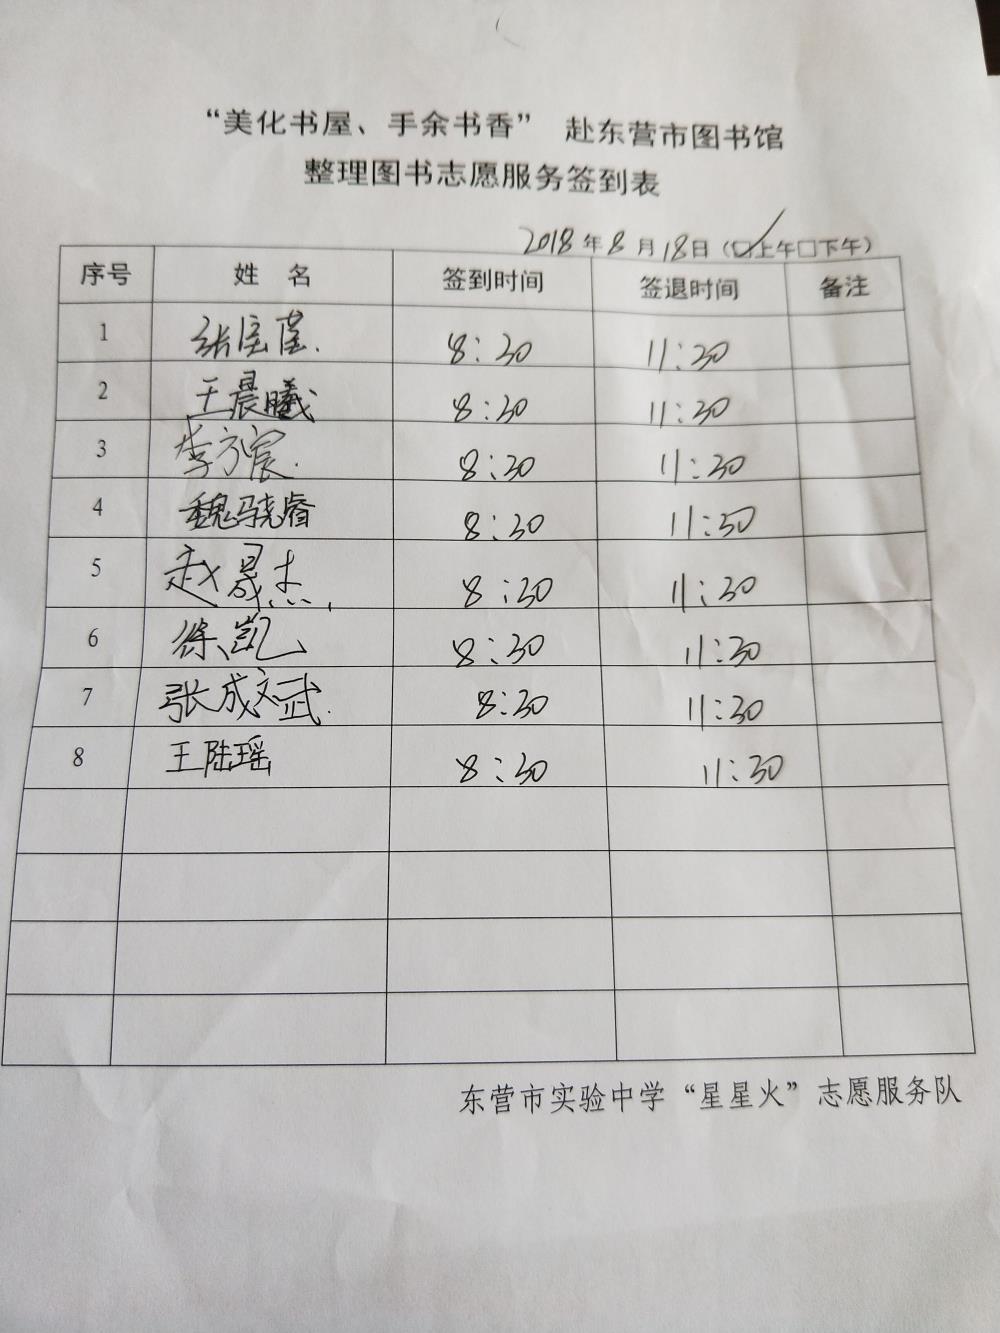 “美化书屋、手余书香” 赴东营市图书馆
整理图书志愿服务签到表
2018年8月18日(☑上午□下午)
序号 姓 名 签到时间 签退时间 备注
1 张宝莲 8:30 11:30
2 王晨曦 8:30 11:30
3 李方宸 8:30 11:30
4 魏骁睿 8:30 11:30
5 赵晟杰 8:30 11:30
6 徐凯 8:30 11:30
7 张成文武 8:30 11:30
8 王陆瑶 8:30 11:30
东营市实验中学“星星火”志愿服务队